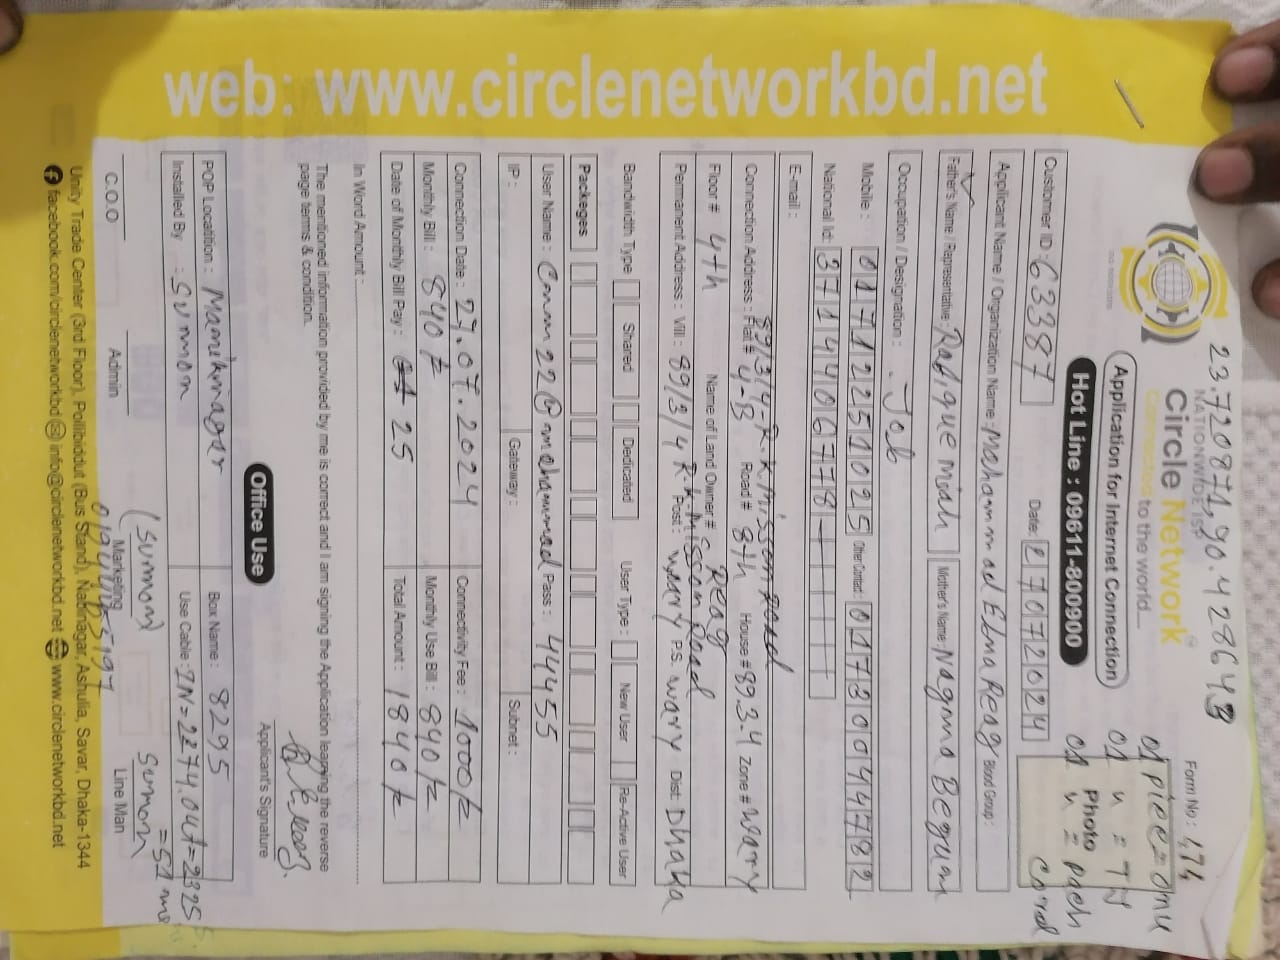 web: www.circlenetworkbd.net
23.720871,90.428643
Form No: 474
NATIONWIDE ISP
Circle Network
Connected to the world....
Application for Internet Connection
Hot Line : 09611-800900
01 piece = onu
01 " = TJ
Photo
01 " = pach cord
Customer ID : 63387 Date: 27072024
Applicant Name / Organization Name : Mahammad Elma Reag Blood Group :
Father's Name / Representative : Rafique miah Mother's Name : Nagma Begum
Occupation / Designation : Job
Mobile : 01712251025 Other Contact : 01730044782
National Id: 3714406778
E-mail :
89/3/4-R.K.Misson road
Connection Address : Flat # 4-B Road # 8th House # 89.3.4 Zone # wary
Floor # 4th Name of Land Owner # Reag
R.K Misson Road
Permanent Address : Vill : 89/3/4 Post : wary P.S. wary Dist: Dhaka
Bandwidth Type Shared Dedicated User Type : New User Re-Active User
Packages
User Name : Pass : 44455
IP : Gateway : Subnet :
Connection Date : 27.07.2024 Connectivity Fee : 1000/=
Monthly Bill : 840/= Monthly Use Bill : 840/=
Date of Monthly Bill Pay : 25 Total Amount : 1840/=
In Word Amount :
The mentioned information provided by me is correct and I am signing the Application leaping the reverse
page terms & condition.
Applicant's Signature
Office Use
POP Locatition : Maniknagar Box Name : 8295
Installed By : Summon Use Cable : IN=2274.OUT=2325
=51 m
(Summon) Summon
C.O.O Admin Marketing Line Man
Unity Trade Center (3rd Floor), Pollibiddut (Bus Stand), Nabinagar, Ashulia, Savar, Dhaka-1344
facebook.com/circlenetworkbd info@circlenetworkbd.net www.circlenetworkbd.net